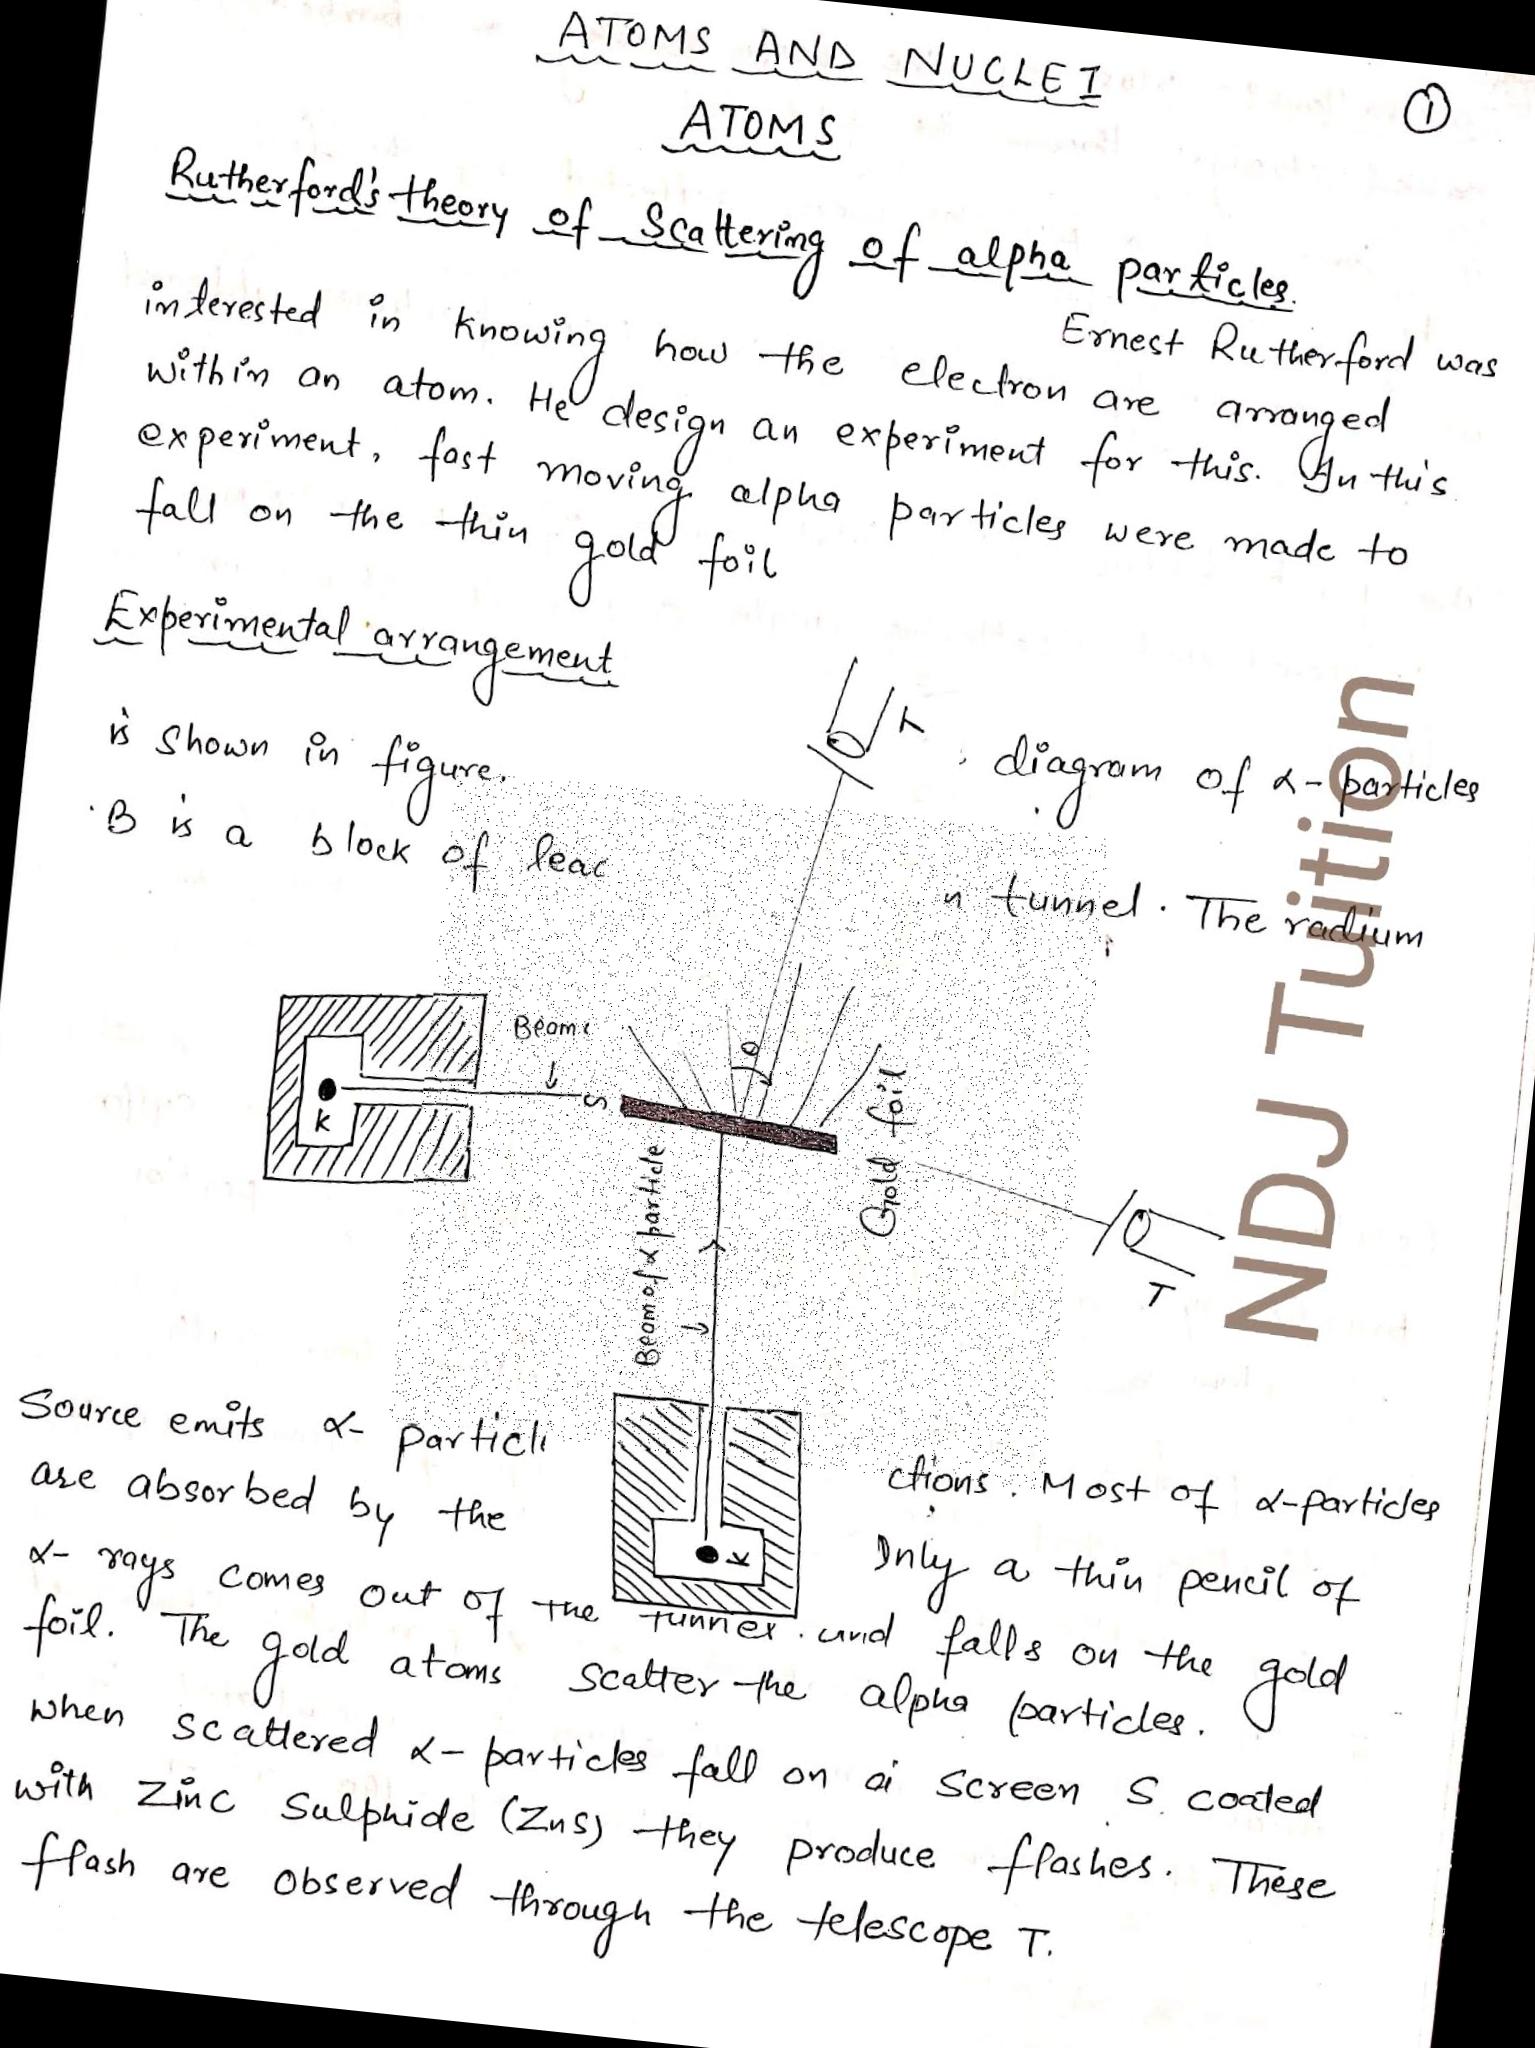 ATOMS AND NUCLEI
①
ATOMS
Rutherford's theory of Scattering of alpha particles.
Ernest Rutherford was
interested in knowing how the electron are arranged
within an atom. He design an experiment for this. In this
experiment, fast moving alpha particles were made to
fall on the thin gold foil
Experimental arrangement
T
is shown in figure. diagram of α-particles
B is a block of n tunnel. The radium
Beam
θ
S
K
Gold foil
Beam of α particle
T
K
NDJ Tuition
Source emits α- ctions. Most of α-particles
are absorbed by the a thin pencil of
α- rays comes out of the tunnel and falls on the gold
foil. The gold atoms scatter the alpha particles.
when scattered α- particles fall on a screen S. coated
with Zinc Sulphide (ZnS) they produce flashes. These
flash are observed through the telescope T.